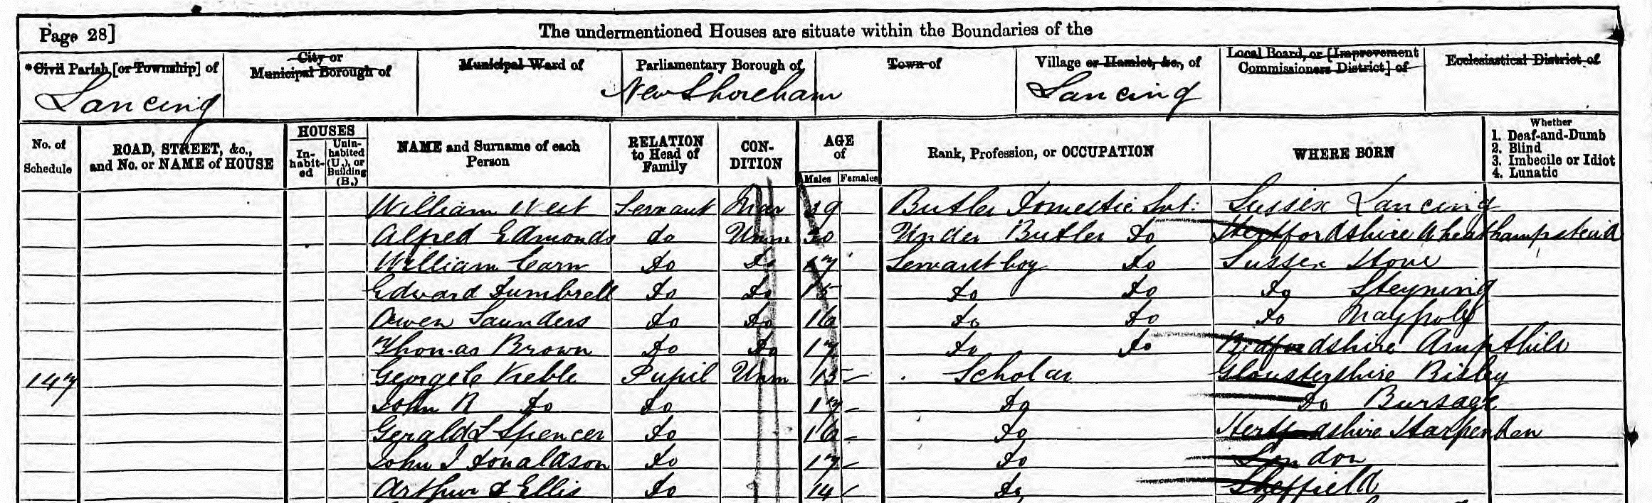 Page 28]
The undermentioned Houses are situate within the Boundaries of the
*Civil Parish [or Township] of
City or
Municipal Borough of
Municipal Ward of
Parliamentary Borough of
Town of
Village or Hamlet, &c., of
Local Board, or [Improvement
Commissioners District] of
Ecclesiastical District of
Lancing
New Shoreham
Lancing
No. of
Schedule
ROAD, STREET, &c.,
and No. or NAME of HOUSE
HOUSES
In-
habit-
ed
Unin-
habited
(U.), or
Building
(B.)
NAME and Surname of each
Person
RELATION
to Head of
Family
CON-
DITION
AGE
of
Males
Females
Rank, Profession, or OCCUPATION
WHERE BORN
Whether
1. Deaf-and-Dumb
2. Blind
3. Imbecile or Idiot
4. Lunatic
William West Servant Mar 29 Butler Domestic Svt: Sussex Lancing
Alfred Edmonds do Unm 20 Under Butler Do Hertfordshire Wheathampstead
William Carn Do Do 17 Servant boy Do Sussex Hove
Edward Dumbrell Do Do 15 Do Do Do Steyning
Owen Saunders do Do 16 Do Do Do
Thomas Brown Do Do 17 Do Do Bedfordshire Ampthill
147 George C Keble Pupil Unm 15 Scholar Gloustershire Bisley
John R do do 17 Do Do
Gerald L Spencer Do 16 Do Hertfordshire Harpendan
John J Donaldson Do 17 Do London
Arthur Ellis Do 14 Do Sheffield